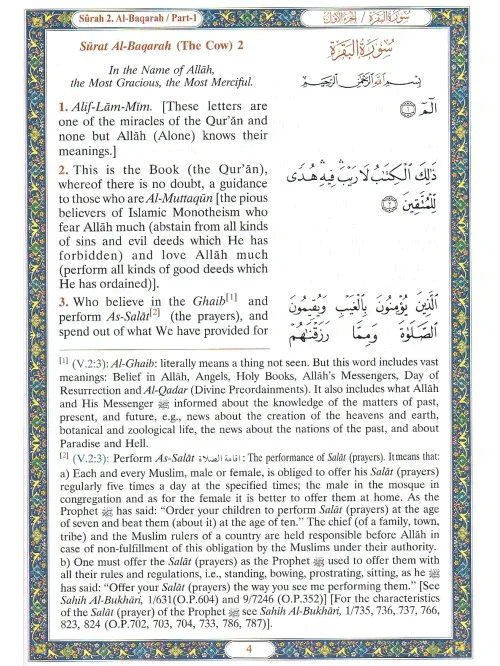 Sûrah 2. Al-Baqarah / Part-1
سُورَةُ البَقَرَة / الجُزءُ الأَوَّل
Sûrat Al-Baqarah (The Cow) 2
سُورَةُ البَقَرَةِ
In the Name of Allâh,
the Most Gracious, the Most Merciful.
بِسْمِ اللَّهِ الرَّحْمَٰنِ الرَّحِيمِ
1. Alif-Lâm-Mîm. [These letters are
one of the miracles of the Qur'ân and
none but Allâh (Alone) knows their
meanings.]
الٓمٓ ١
2. This is the Book (the Qur'ân),
whereof there is no doubt, a guidance
to those who are Al-Muttaqûn [the pious
believers of Islamic Monotheism who
fear Allâh much (abstain from all kinds
of sins and evil deeds which He has
forbidden) and love Allâh much
(perform all kinds of good deeds which
He has ordained)].
ذَٰلِكَ الْكِتَابُ لَا رَيْبَ ۛ فِيهِ ۛ هُدًى
لِّلْمُتَّقِينَ ٢
3. Who believe in the Ghaib[1] and
perform As-Salât[2] (the prayers), and
spend out of what We have provided for
الَّذِينَ يُؤْمِنُونَ بِالْغَيْبِ وَيُقِيمُونَ
الصَّلَوٰةَ وَمِمَّا رَزَقْنَٰهُمْ
[1] (V.2:3): Al-Ghaib: literally means a thing not seen. But this word includes vast
meanings: Belief in Allâh, Angels, Holy Books, Allâh's Messengers, Day of
Resurrection and Al-Qadar (Divine Preordainments). It also includes what Allâh
and His Messenger ﷺ informed about the knowledge of the matters of past,
present, and future, e.g., news about the creation of the heavens and earth,
botanical and zoological life, the news about the nations of the past, and about
Paradise and Hell.
[2] (V.2:3): Perform As-Salât اقامة الصلاة : The performance of Salât (prayers). It means that:
a) Each and every Muslim, male or female, is obliged to offer his Salât (prayers)
regularly five times a day at the specified times; the male in the mosque in
congregation and as for the female it is better to offer them at home. As the
Prophet ﷺ has said: "Order your children to perform Salât (prayers) at the age
of seven and beat them (about it) at the age of ten." The chief (of a family, town,
tribe) and the Muslim rulers of a country are held responsible before Allâh in
case of non-fulfillment of this obligation by the Muslims under their authority.
b) One must offer the Salât (prayers) as the Prophet ﷺ used to offer them with
all their rules and regulations, i.e., standing, bowing, prostrating, sitting, as he ﷺ
has said: "Offer your Salât (prayers) the way you see me performing them." [See
Sahih Al-Bukhâri, 1/631(O.P.604) and 9/7246 (O.P.352)] [For the characteristics
of the Salât (prayer) of the Prophet ﷺ see Sahih Al-Bukhâri, 1/735, 736, 737, 766,
823, 824 (O.P.702, 703, 704, 733, 786, 787)].
4